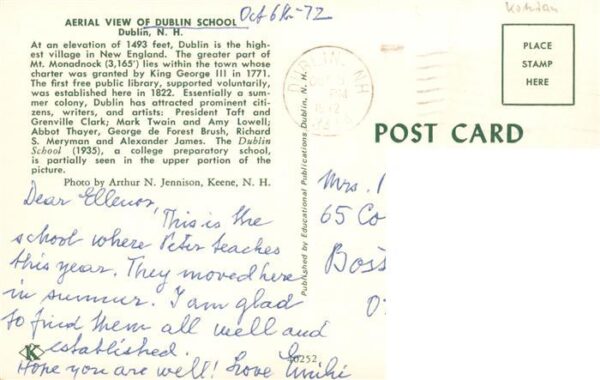 AERIAL VIEW OF DUBLIN SCHOOL
Oct 6th-72
Dublin, N. H.
At an elevation of 1493 feet, Dublin is the high-
est village in New England. The greater part of
Mt. Monadnock (3,165') lies within the town whose
charter was granted by King George III in 1771.
The first free public library, supported voluntarily,
was established here in 1822. Essentially a sum-
mer colony, Dublin has attracted prominent citi-
zens, writers, and artists: President Taft and
Grenville Clark; Mark Twain and Amy Lowell;
Abbot Thayer, George de Forest Brush, Richard
S. Meryman and Alexander James. The Dublin
School (1935), a college preparatory school,
is partially seen in the upper portion of the
picture.
Photo by Arthur N. Jennison, Keene, N. H.
Dear Ellenor,
This is the
school where Peter teaches
this year. They moved here
in summer. I am glad
to find them all well and
established.
Hope you are well! Love
K
40252
Published by Educational Publications Dublin, N. H.
DUBLIN, NH
PM
1972
PLACE
STAMP
HERE
POST CARD
Mrs.
65 Co
Bos